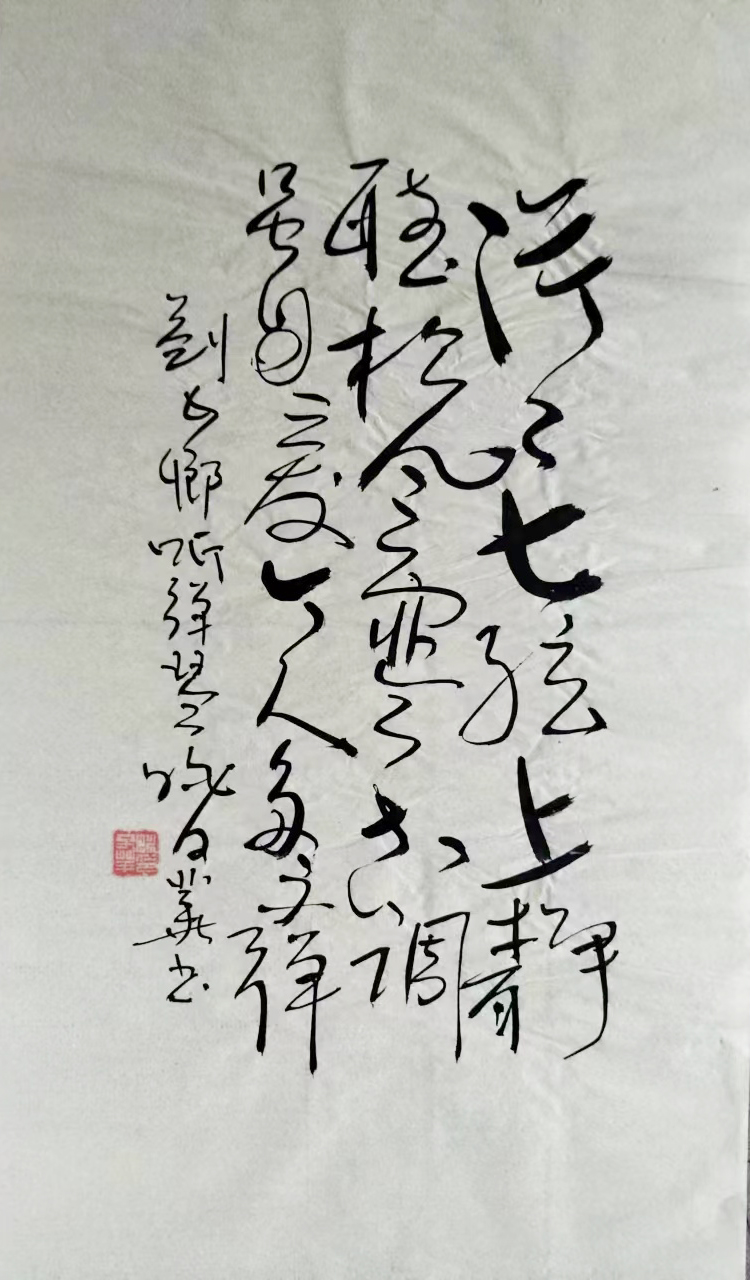 泠泠七弦上静
聽松风寒古调
虽自爱今人多不弹
劉长卿听弹琴书